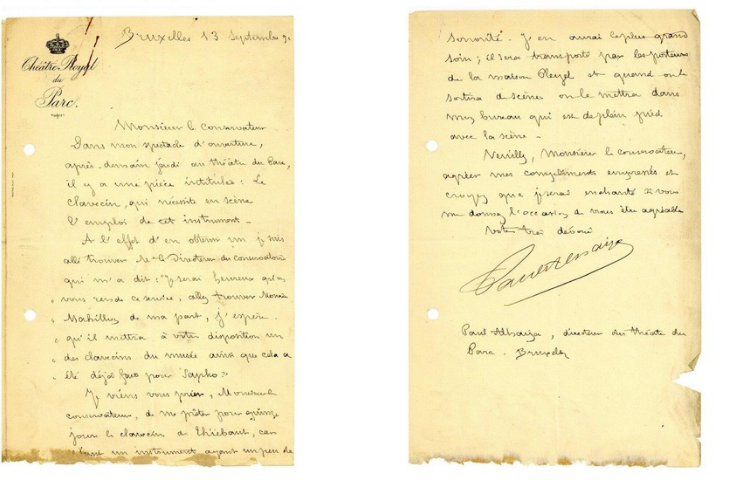 Bruxelles 13 Septembre 9.
Théâtre Royal
du
Parc.
Monsieur le Conservateur
Dans mon spectacle d'ouverture,
après-demain jeudi au théâtre du Parc,
il y a une pièce intitulée : Le
clavecin, qui nécessite en scène
l'emploi de cet instrument.
A l'effet d'en obtenir un je suis
allé trouver Mr le Directeur du conservatoire
qui m'a dit : "Je serai heureux qu'on
vous rende ce service, allez trouver Monsieur
Mahillon de ma part, j'espère
qu'il mettra à votre disposition un
des clavecins du musée ainsi que cela a
été déjà fait pour Sapho"
Je viens vous prier, Monsieur le
conservateur, de me prêter pour quinze
jours le clavecin de Thiébaut, car
il faut un instrument ayant un peu de
sonorité. J'en aurai le plus grand
soin ; il sera transporté par les porteurs
de la maison Pleyel et quand on le
sortira de scène on le mettra dans
mon bureau qui est de plein pied
avec la scène.
Veuillez, Monsieur le conservateur,
agréer mes compliments empressés et
croyez que je serai enchanté si vous
me donnez l'occasion de vous être agréable
Votre très dévoué
Paul Alhaiza
Paul Alhaiza, directeur du théâtre du
Parc. Bruxelles